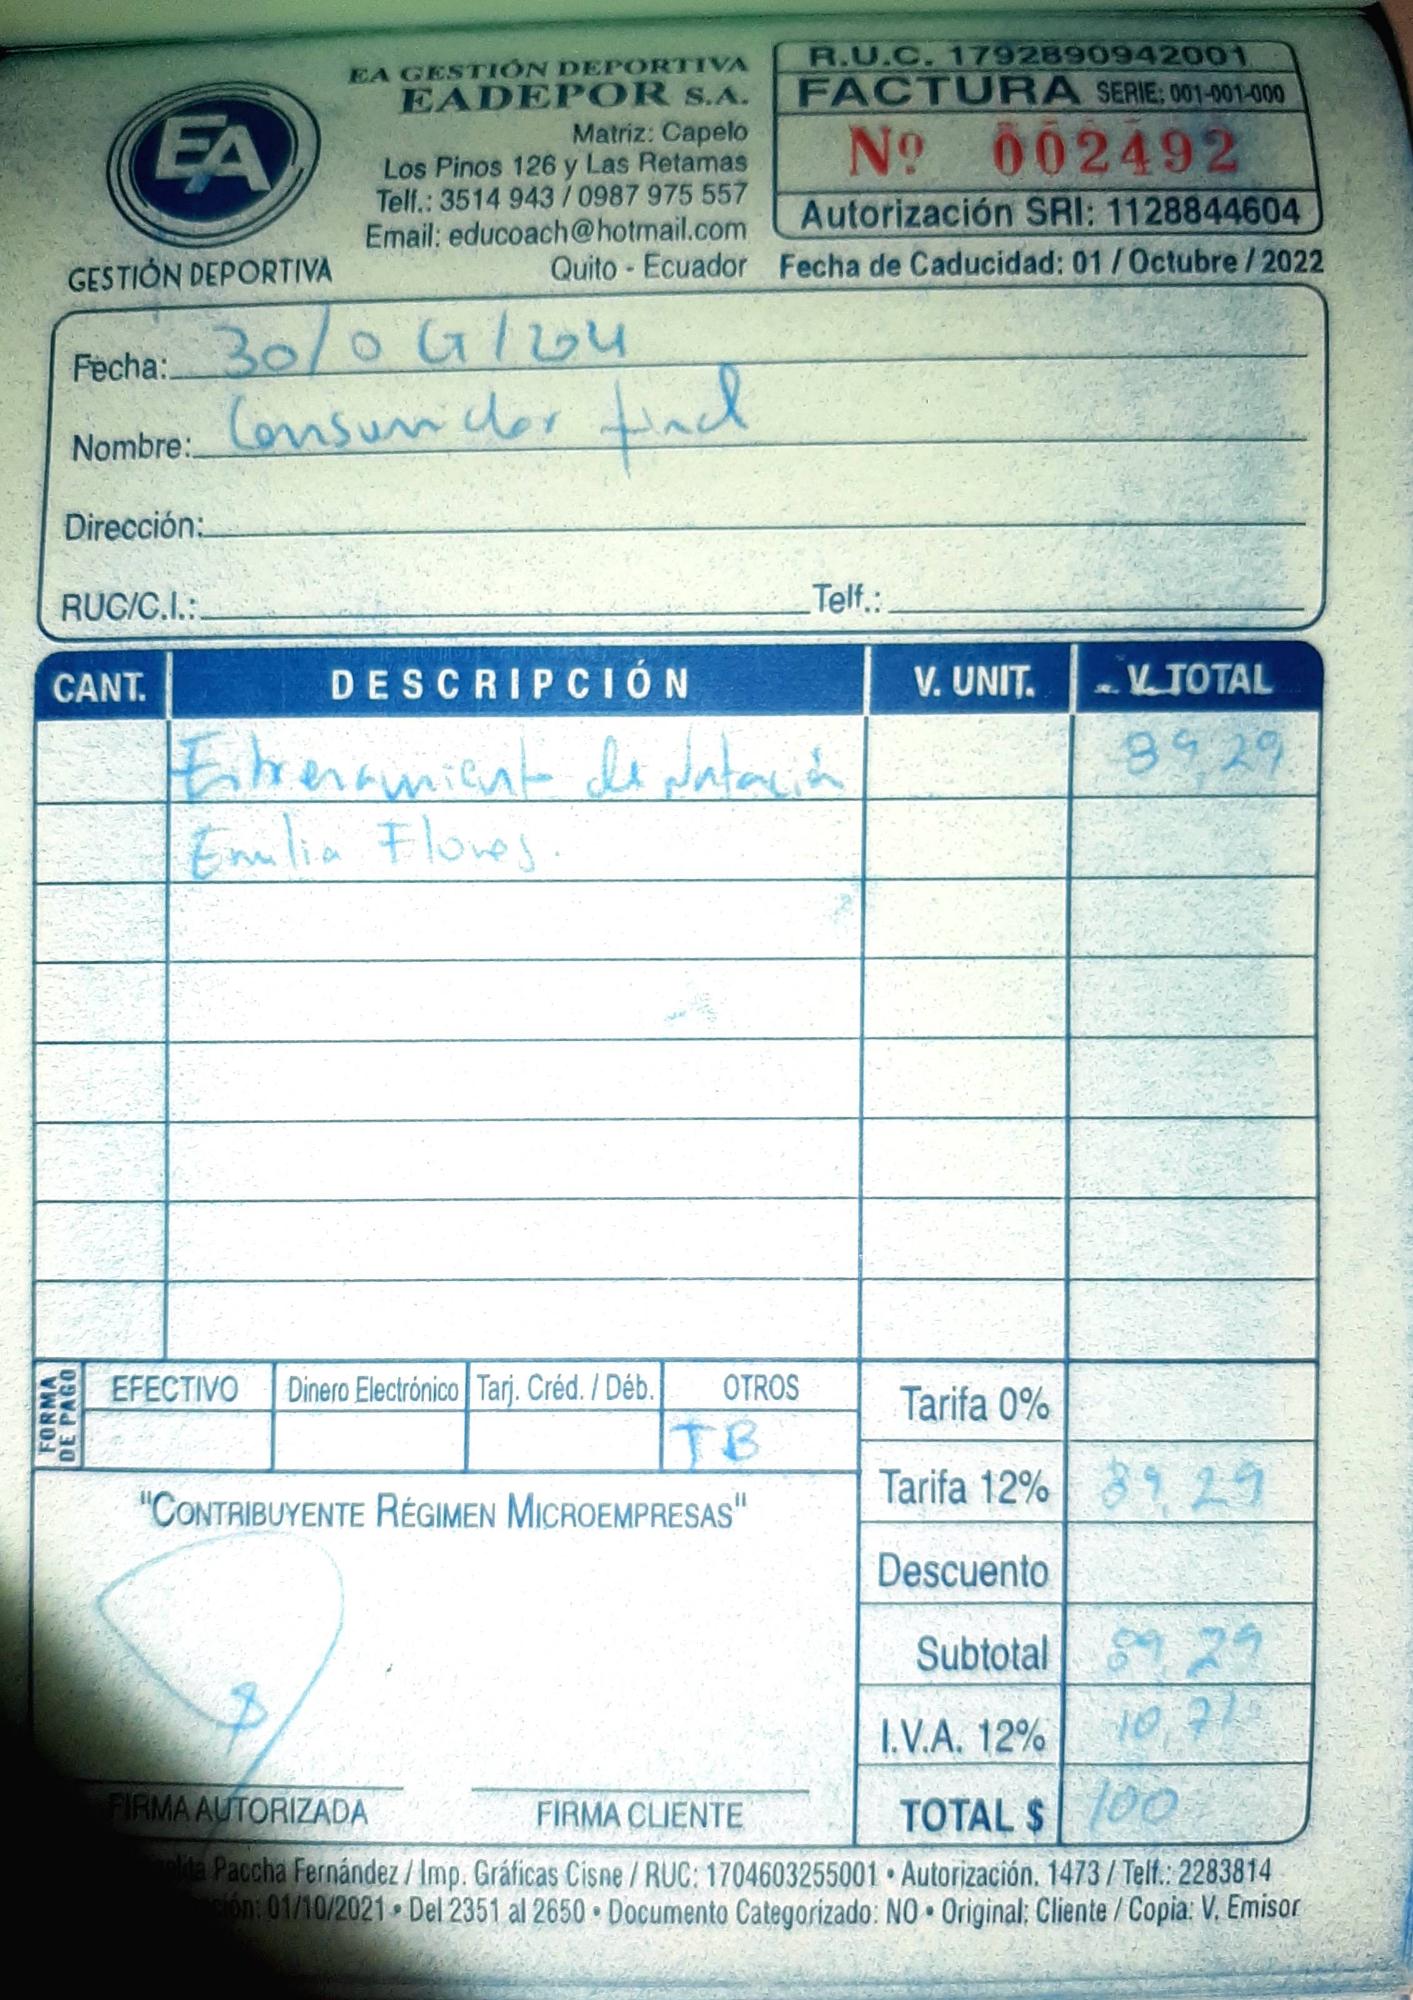 EA GESTIÓN DEPORTIVA
EADEPOR S.A.
Matriz: Capelo
Los Pinos 126 y Las Retamas
Telf.: 3514 943 / 0987 975 557
Email: educoach@hotmail.com
Quito - Ecuador
EA
GESTIÓN DEPORTIVA
R.U.C. 1792890942001
FACTURA SERIE: 001-001-000
Nº 002492
Autorización SRI: 1128844604
Fecha de Caducidad: 01 / Octubre / 2022
Fecha: 30/
Nombre: Consumidor final
Dirección:
RUC/C.I.: Telf.:
CANT. DESCRIPCIÓN V. UNIT. V. TOTAL
Entrenamiento de Natación 89,29
Emilia Flores.
FORMA DE PAGO
EFECTIVO Dinero Electrónico Tarj. Créd. / Déb. OTROS
TB
Tarifa 0%
Tarifa 12% 89,29
Descuento
Subtotal 89,29
I.V.A. 12% 10,71
TOTAL $ 100
"CONTRIBUYENTE RÉGIMEN MICROEMPRESAS"
FIRMA AUTORIZADA FIRMA CLIENTE
Paccha Fernández / Imp. Gráficas Cisne / RUC: 1704603255001 • Autorización. 1473 / Telf.: 2283814
01/10/2021 • Del 2351 al 2650 • Documento Categorizado: NO • Original: Cliente / Copia: V. Emisor